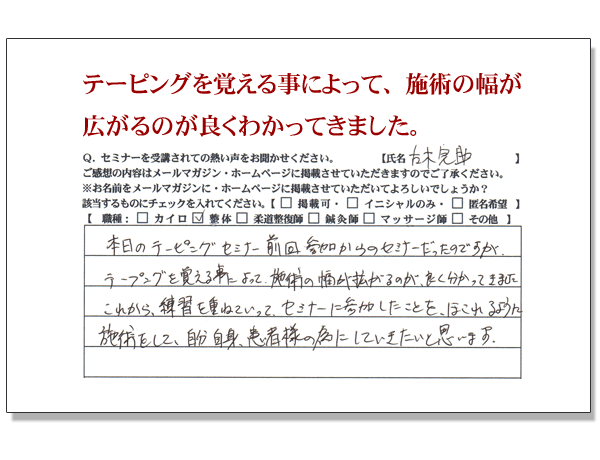 テーピングを覚える事によって、施術の幅が
広がるのが良くわかってきました。
Q．セミナーを受講されての熱い声をお聞かせください。 【氏名 木 亮助 】
ご感想の内容はメールマガジン・ホームページに掲載させていただきますのでご了承ください。
※お名前をメールマガジンに・ホームページに掲載させていただいてよろしいでしょうか？
該当するものにチェックを入れてください。【 □ 掲載可・ □ イニシャルのみ・ □ 匿名希望 】
【 職種： □ カイロ ☑ 整体 □ 柔道整復師 □ 鍼灸師 □ マッサージ師 □ その他 】
本日のテーピングセミナー前回参加からのセミナーだったのですが、
テーピングを覚える事によって、施術の幅が拡がるのが、良く分かってきました
これから、練習を重ねていって、セミナーに参加したことを、ほこれるように
施術をして、自分自身、患者様の為にしていきたいと思います。